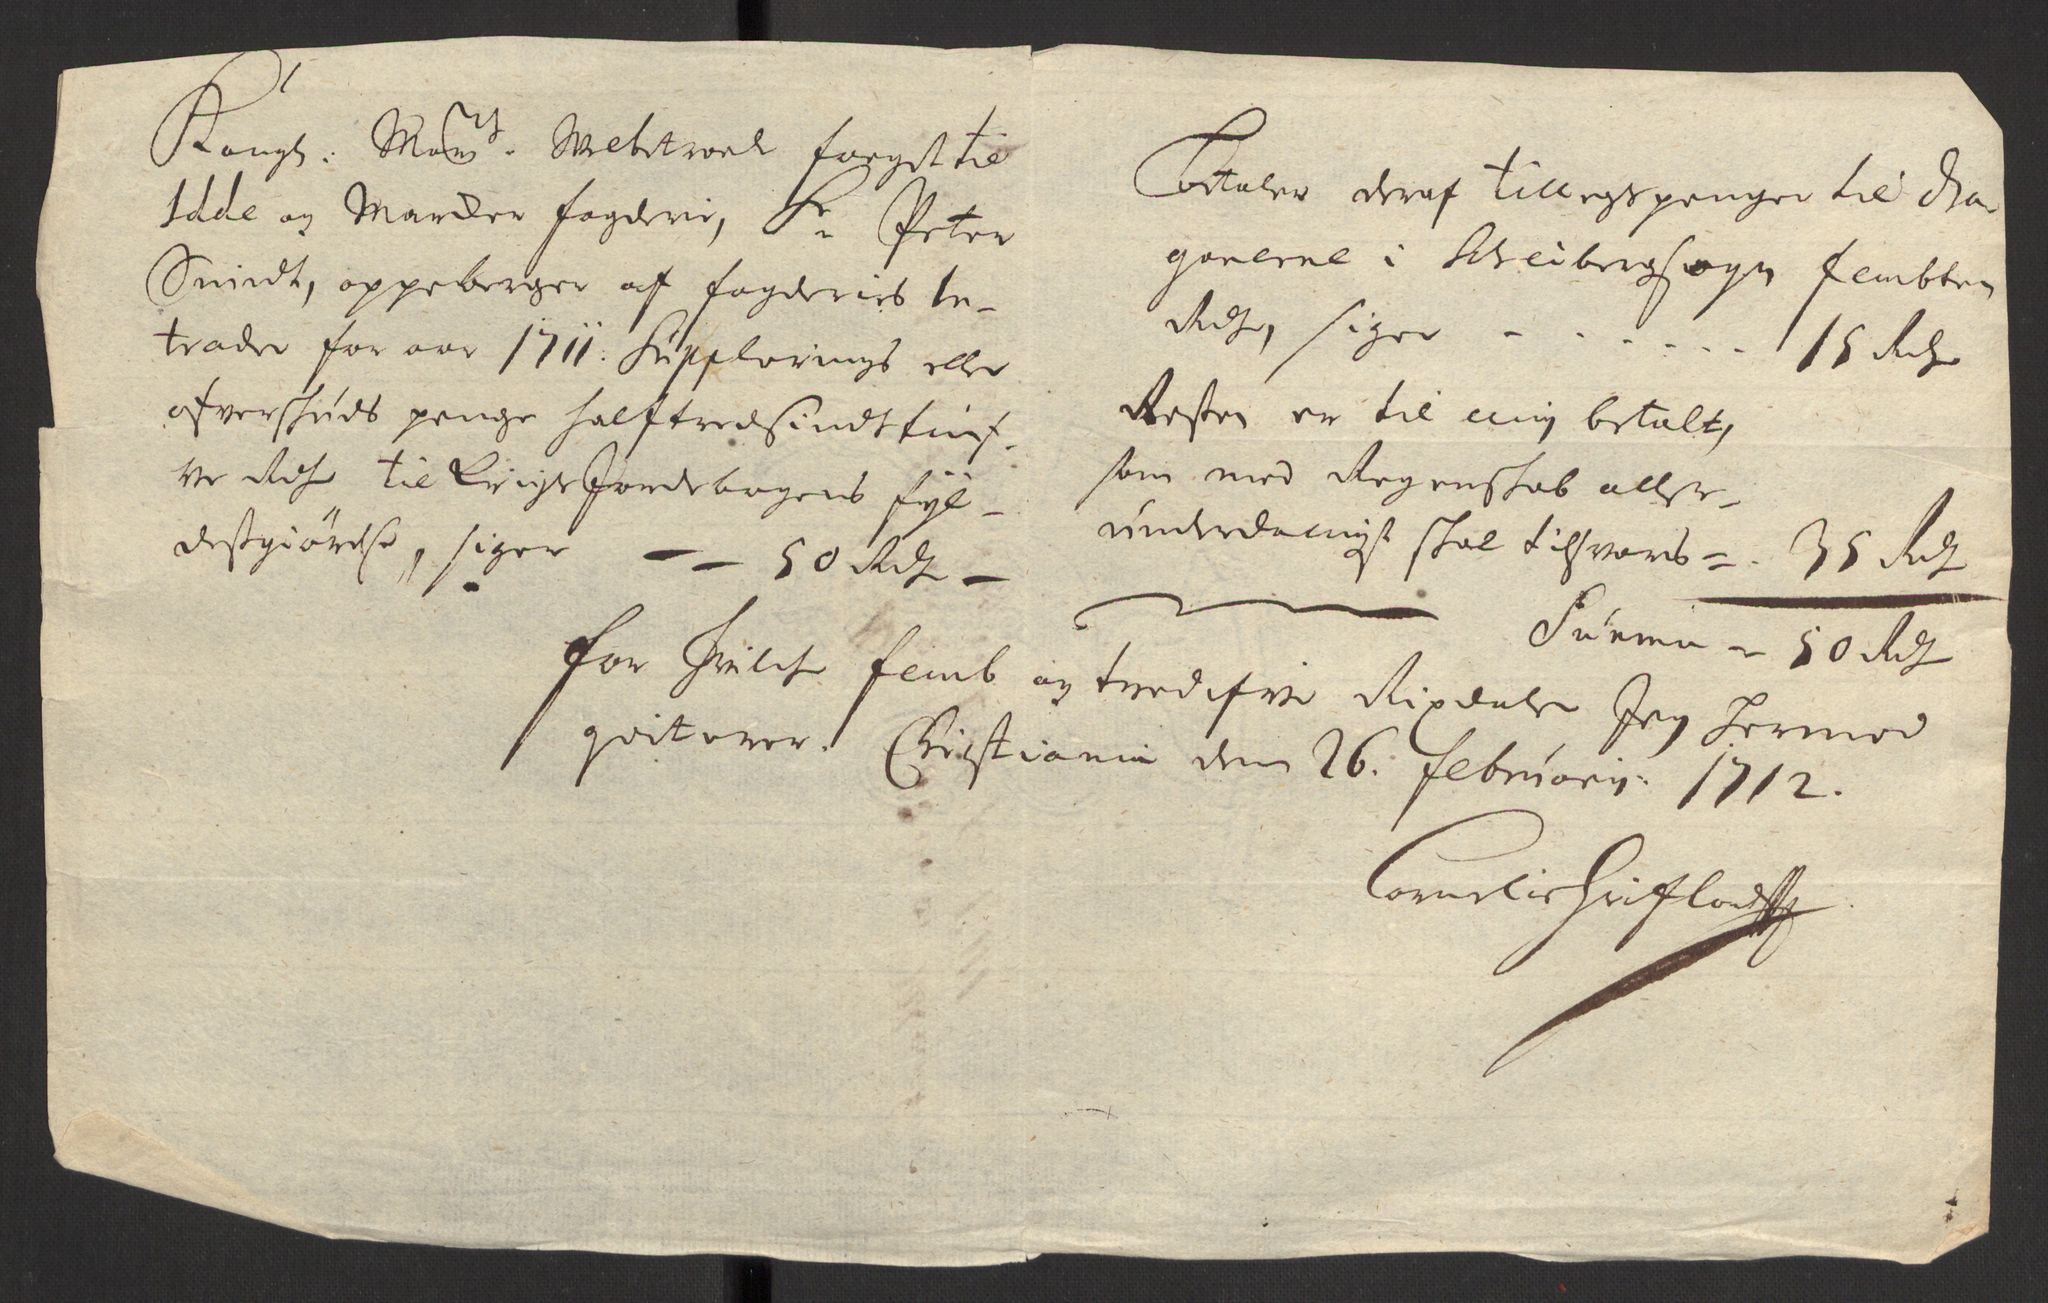 Kongl: Mayts. Welbetroede foeget til
Idde og Marcker fogderie, Sr. Peter
Smidt, oppeberger af fogderiets In-
trader for aar 1711: Supplerings eller
ofverskuds penge halftredsindstuif-
ve Rdlr til Krigs Jordebogens fyl-
destgiörelse, siger — — 50 Rdlr —
Betaler deraf tillegspenger til dra
gonerne i Schiebergsogn fembten
Rdlr, siger - . . . . . . 15 Rdlr
Resten er til mig betalt,
som med Regenskab aller-
underdanigst skal tilsvaris =. 35 Rdlr
Summa - 50 Rdlr
for hvilche femb og tredifve Rixdaler Jeg hermed
qviterer. Christiania den 26. februarij: 1712.
Cornelis